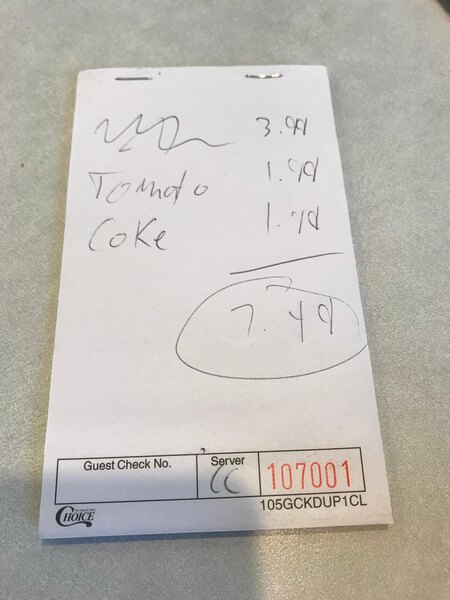 3.99
Tomato 1.99
Coke
7.49
Guest Check No. Server
CC 107001
CHOICE 105GCKDUP1CL